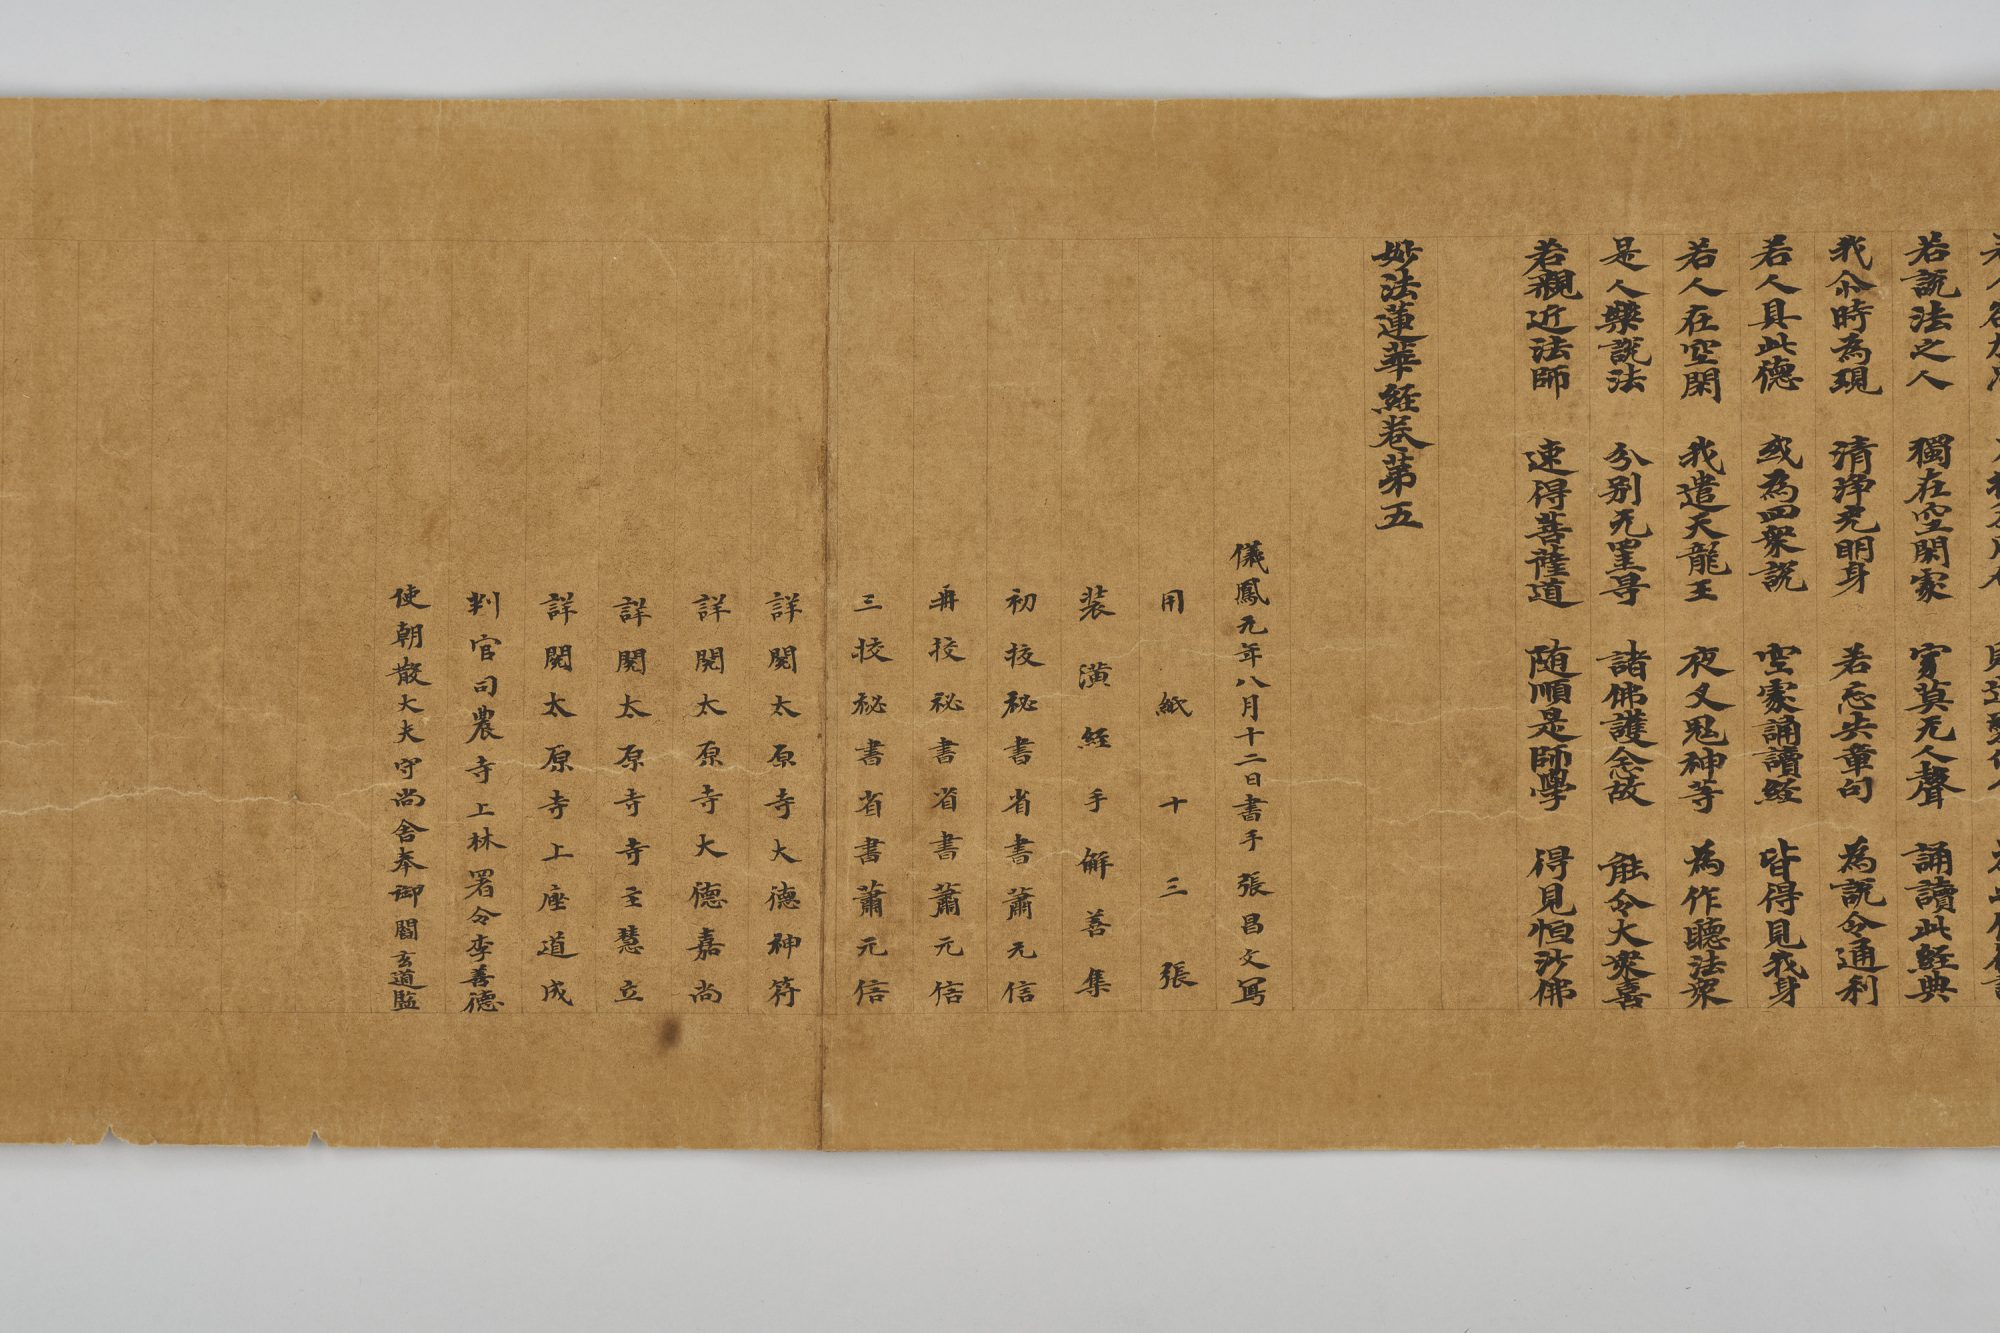 若說法之人 獨在空閑處 穿莫无人聲 誦讀此經典
我尒時為現 清淨光明身 若忘失章句 為說令通利
若人具此德 或為四衆說 空處誦讀經 皆得見我身
若人在空閑 我遣天龍王 夜叉鬼神等 為作聽法衆
是人樂說法 分別无罣㝵 諸佛護念故 能令大衆喜
若親近法師 速得菩薩道 随順是師學 得見恒沙佛
妙法蓮華經卷第五
儀鳳元年八月十二日書手張昌文寫
用紙十三張
装潢經手解善集
初校秘書省書手蕭元信
再校秘書省書手蕭元信
三校秘書省書手蕭元信
詳閱太原寺大德神符
詳閱太原寺大德嘉尚
詳閱太原寺寺主慧立
詳閱太原寺上座道成
判官司農寺上林署令李善德
使朝散大夫守尚舍奉御閻玄道監